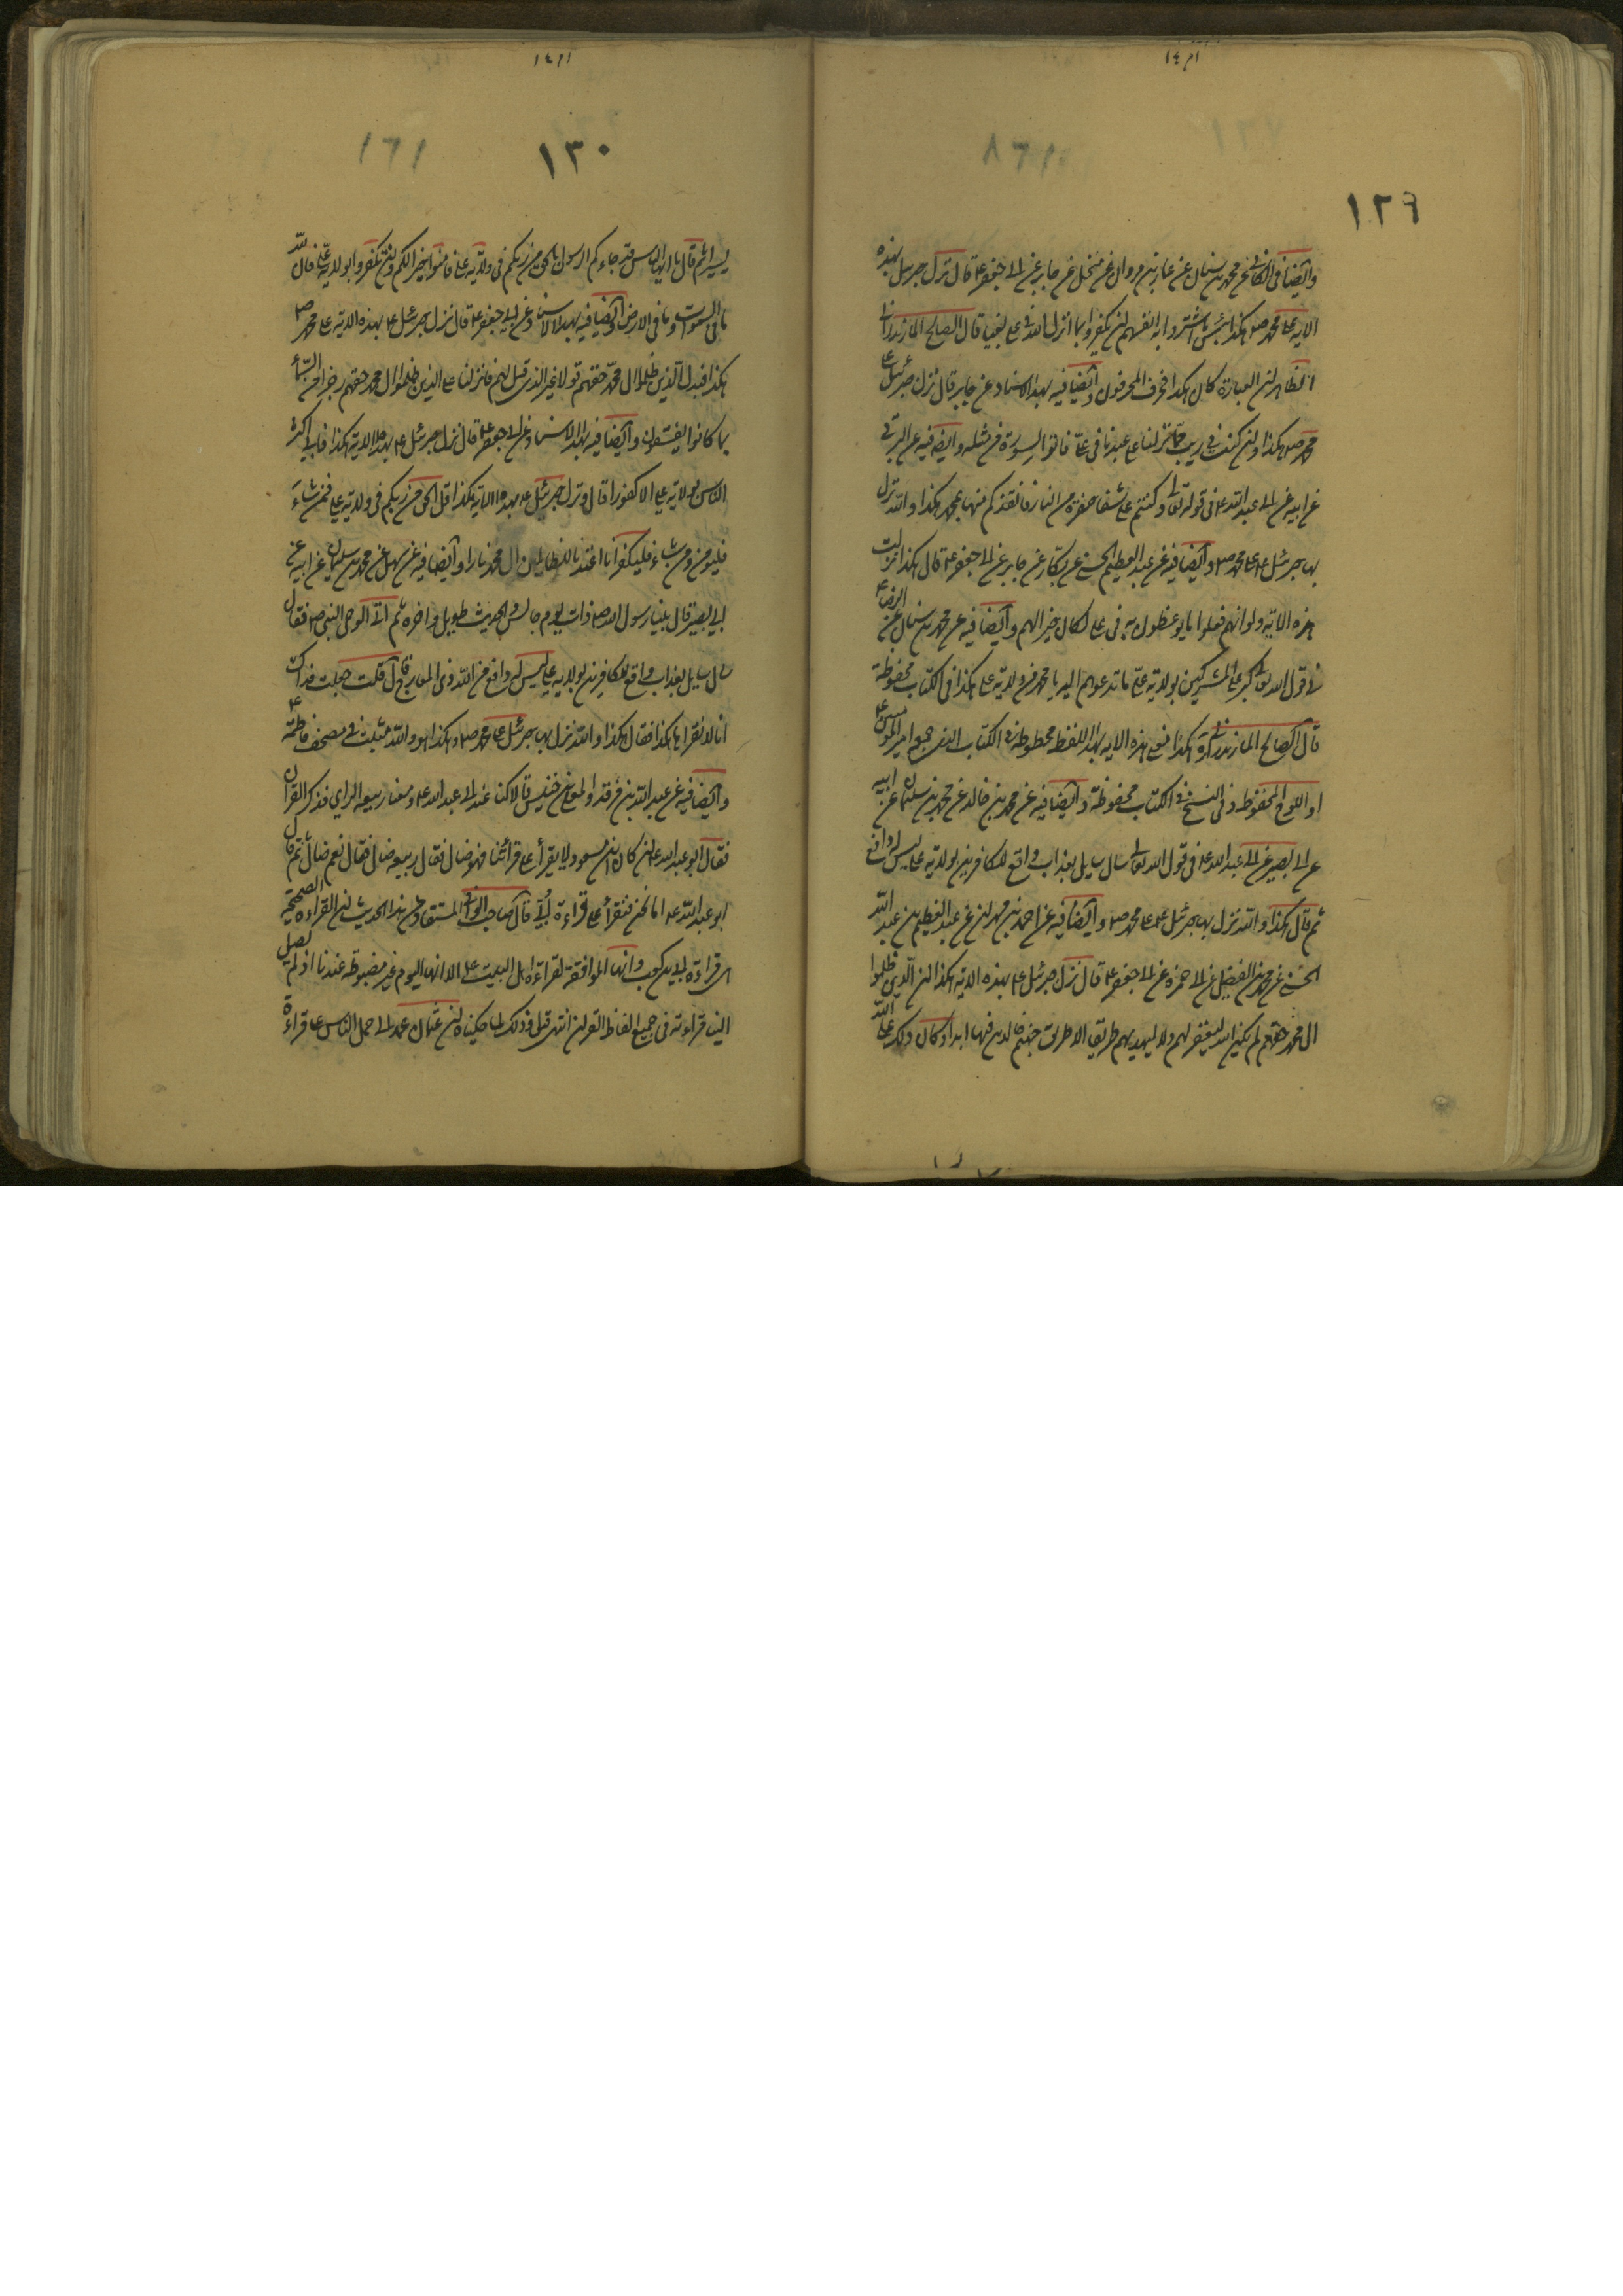 ١٢٩
وايضا في الكافي عن محمد بن سنان عن عمار بن مروان عن منخل عن جابر عن ابي جعفر ع قال نزل جبرئيل بهذه
الاية على محمد ص هكذا بئس ما اشتروا به انفسهم ان يكفروا بما انزل الله في علي بغيا قال الصالح المازندراني
الظاهر ان العبارة كان هكذا فحرف المحرفون وايضا فيه بهذا الاسناد عن جابر قال نزل جبرئيل ع
محمد ص هكذا وان كنتم في ريب مما نزلنا على عبدنا في علي فاتوا بسورة من مثله وايضا فيه عن البرقي
عن ابيه عن ابي عبد الله ع في قوله تعالى وكنتم على شفا حفرة من النار فانقذكم منها بمحمد هكذا والله نزل
بها جبرئيل ع على محمد ص وايضا فيه عن عبد العظيم الحسني عن بكار عن جابر عن ابي جعفر ع قال هكذا نزلت
هذه الاية ولو انهم فعلوا ما يوعظون به في علي لكان خيرا لهم وايضا فيه عن محمد بن سنان عن الرضا ع
في قول الله تعالى كبر على المشركين بولاية علي ما تدعوهم اليه يا محمد من ولاية علي هكذا في الكتاب مخطوطة
قال الصالح المازندراني هكذا هذه الاية بهذا اللفظ مخطوطة في الكتاب الذي جمعه امير المؤمنين ع
او اللوح المحفوظ وفي النسخ في الكتاب محفوظة وايضا فيه عن محمد بن خالد عن محمد بن سليمان عن ابيه
عن ابي بصير عن ابي عبد الله ع في قول الله تعالى سال سايل بعذاب واقع للكافرين بولاية علي ليس له دافع
ثم قال هكذا والله نزل بها جبرئيل ع على محمد ص وايضا فيه عن احمد بن مهران عن عبد العظيم بن عبد الله
الحسني عن محمد بن الفضيل عن ابي حمزة عن ابي جعفر ع قال نزل جبرئيل ع بهذه الاية هكذا ان الذين ظلموا
ال محمد حقهم لم يكن الله ليغفر لهم ولا ليهديهم طريقا الا طريق جهنم خالدين فيها ابدا وكان ذلك على الله
١٣٠
يسيرا ثم قال يا ايها الناس قد جاءكم الرسول بالحق من ربكم في ولاية علي فامنوا خيرا لكم وان تكفروا بولاية علي فان لله
ما في السموات وما في الارض وايضا فيه بهذا الاسناد عن ابي جعفر ع قال نزل جبرئيل ع بهذه الاية على محمد ص
هكذا فبدل الذين ظلموا ال محمد حقهم قولا غير الذي قيل لهم فانزلنا على الذين ظلموا ال محمد حقهم رجزا من السماء
بما كانوا يفسقون وايضا فيه بهذا الاسناد عن ابي جعفر ع قال نزل جبرئيل ع بهذه الاية هكذا فابى اكثر
الناس بولاية علي الا كفورا قال ونزل جبرئيل ع بهذه الاية هكذا قل الحق من ربكم في ولاية علي فمن شاء
فليومن ومن شاء فليكفر انا اعتدنا للظالمين ال محمد نارا وايضا فيه عن سهل عن محمد بن سليمان عن ابيه عن
ابي بصير قال بينا رسول الله ص ذات يوم جالس والحديث طويل واخره ثم اتى الوحي النبي ص فقال
سال سايل بعذاب واقع للكافرين بولاية علي ليس له دافع من الله ذي المعارج قال قلت جعلت فداك
انا لا نقراها هكذا فقال هكذا والله نزل بها جبرئيل على محمد ص وهكذا هو والله مثبت في مصحف فاطمة ع
وايضا فيه عن عبد الله بن فرقد والمعلى بن خنيس قالا كنا عند ابي عبد الله ع ومعنا ربيعة الراي فذكر القران
فقال ابو عبد الله ع ان كان ابن مسعود لا يقرأ على قرائتنا فهو ضال فقال ربيعة ضال فقال نعم ضال ثم قال
ابو عبد الله ع اما نحن فنقرأ على قراءة ابي قال صاحب الوافي المستفاد من هذا الحديث ان القراءة الصحيحة
هي قراءة ابي بن كعب وانها الموافقة لقراءة اهل البيت ع الا انها اليوم غير مضبوطة عندنا اذ لم يصل
الينا قراءته في جميع الفاظ القران انتهى قلت وذلك لما حكيناه ان عثمان عمد الى حمل الناس على قراءة